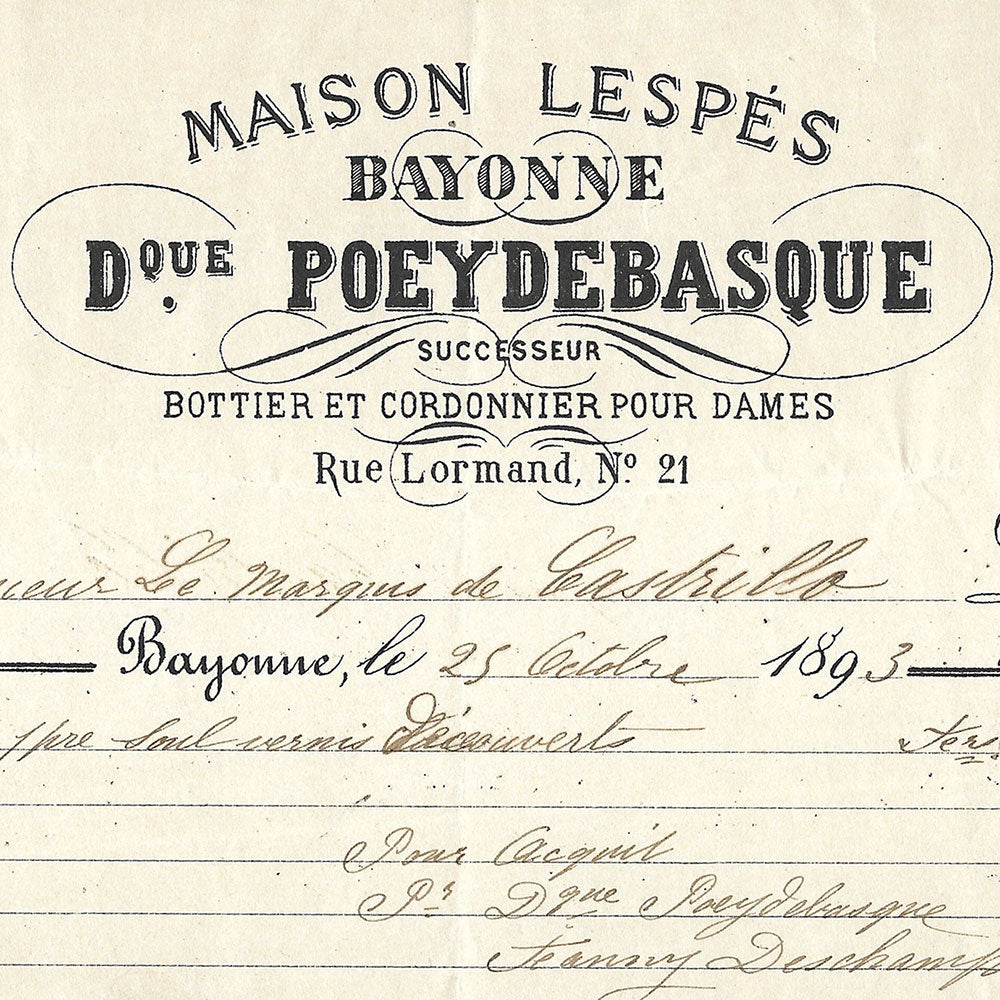 MAISON LESPÉS
BAYONNE
Dque. POEYDEBASQUE
SUCCESSEUR
BOTTIER ET CORDONNIER POUR DAMES
Rue Lormand, No. 21
ieur Le Marquis de Castrillo
Bayonne, le 25 Octobre 1893
1 pre Soul vernis Découverts
Pour Acquit
Pr Dque Poeydebasque
Jeanny Deschamps